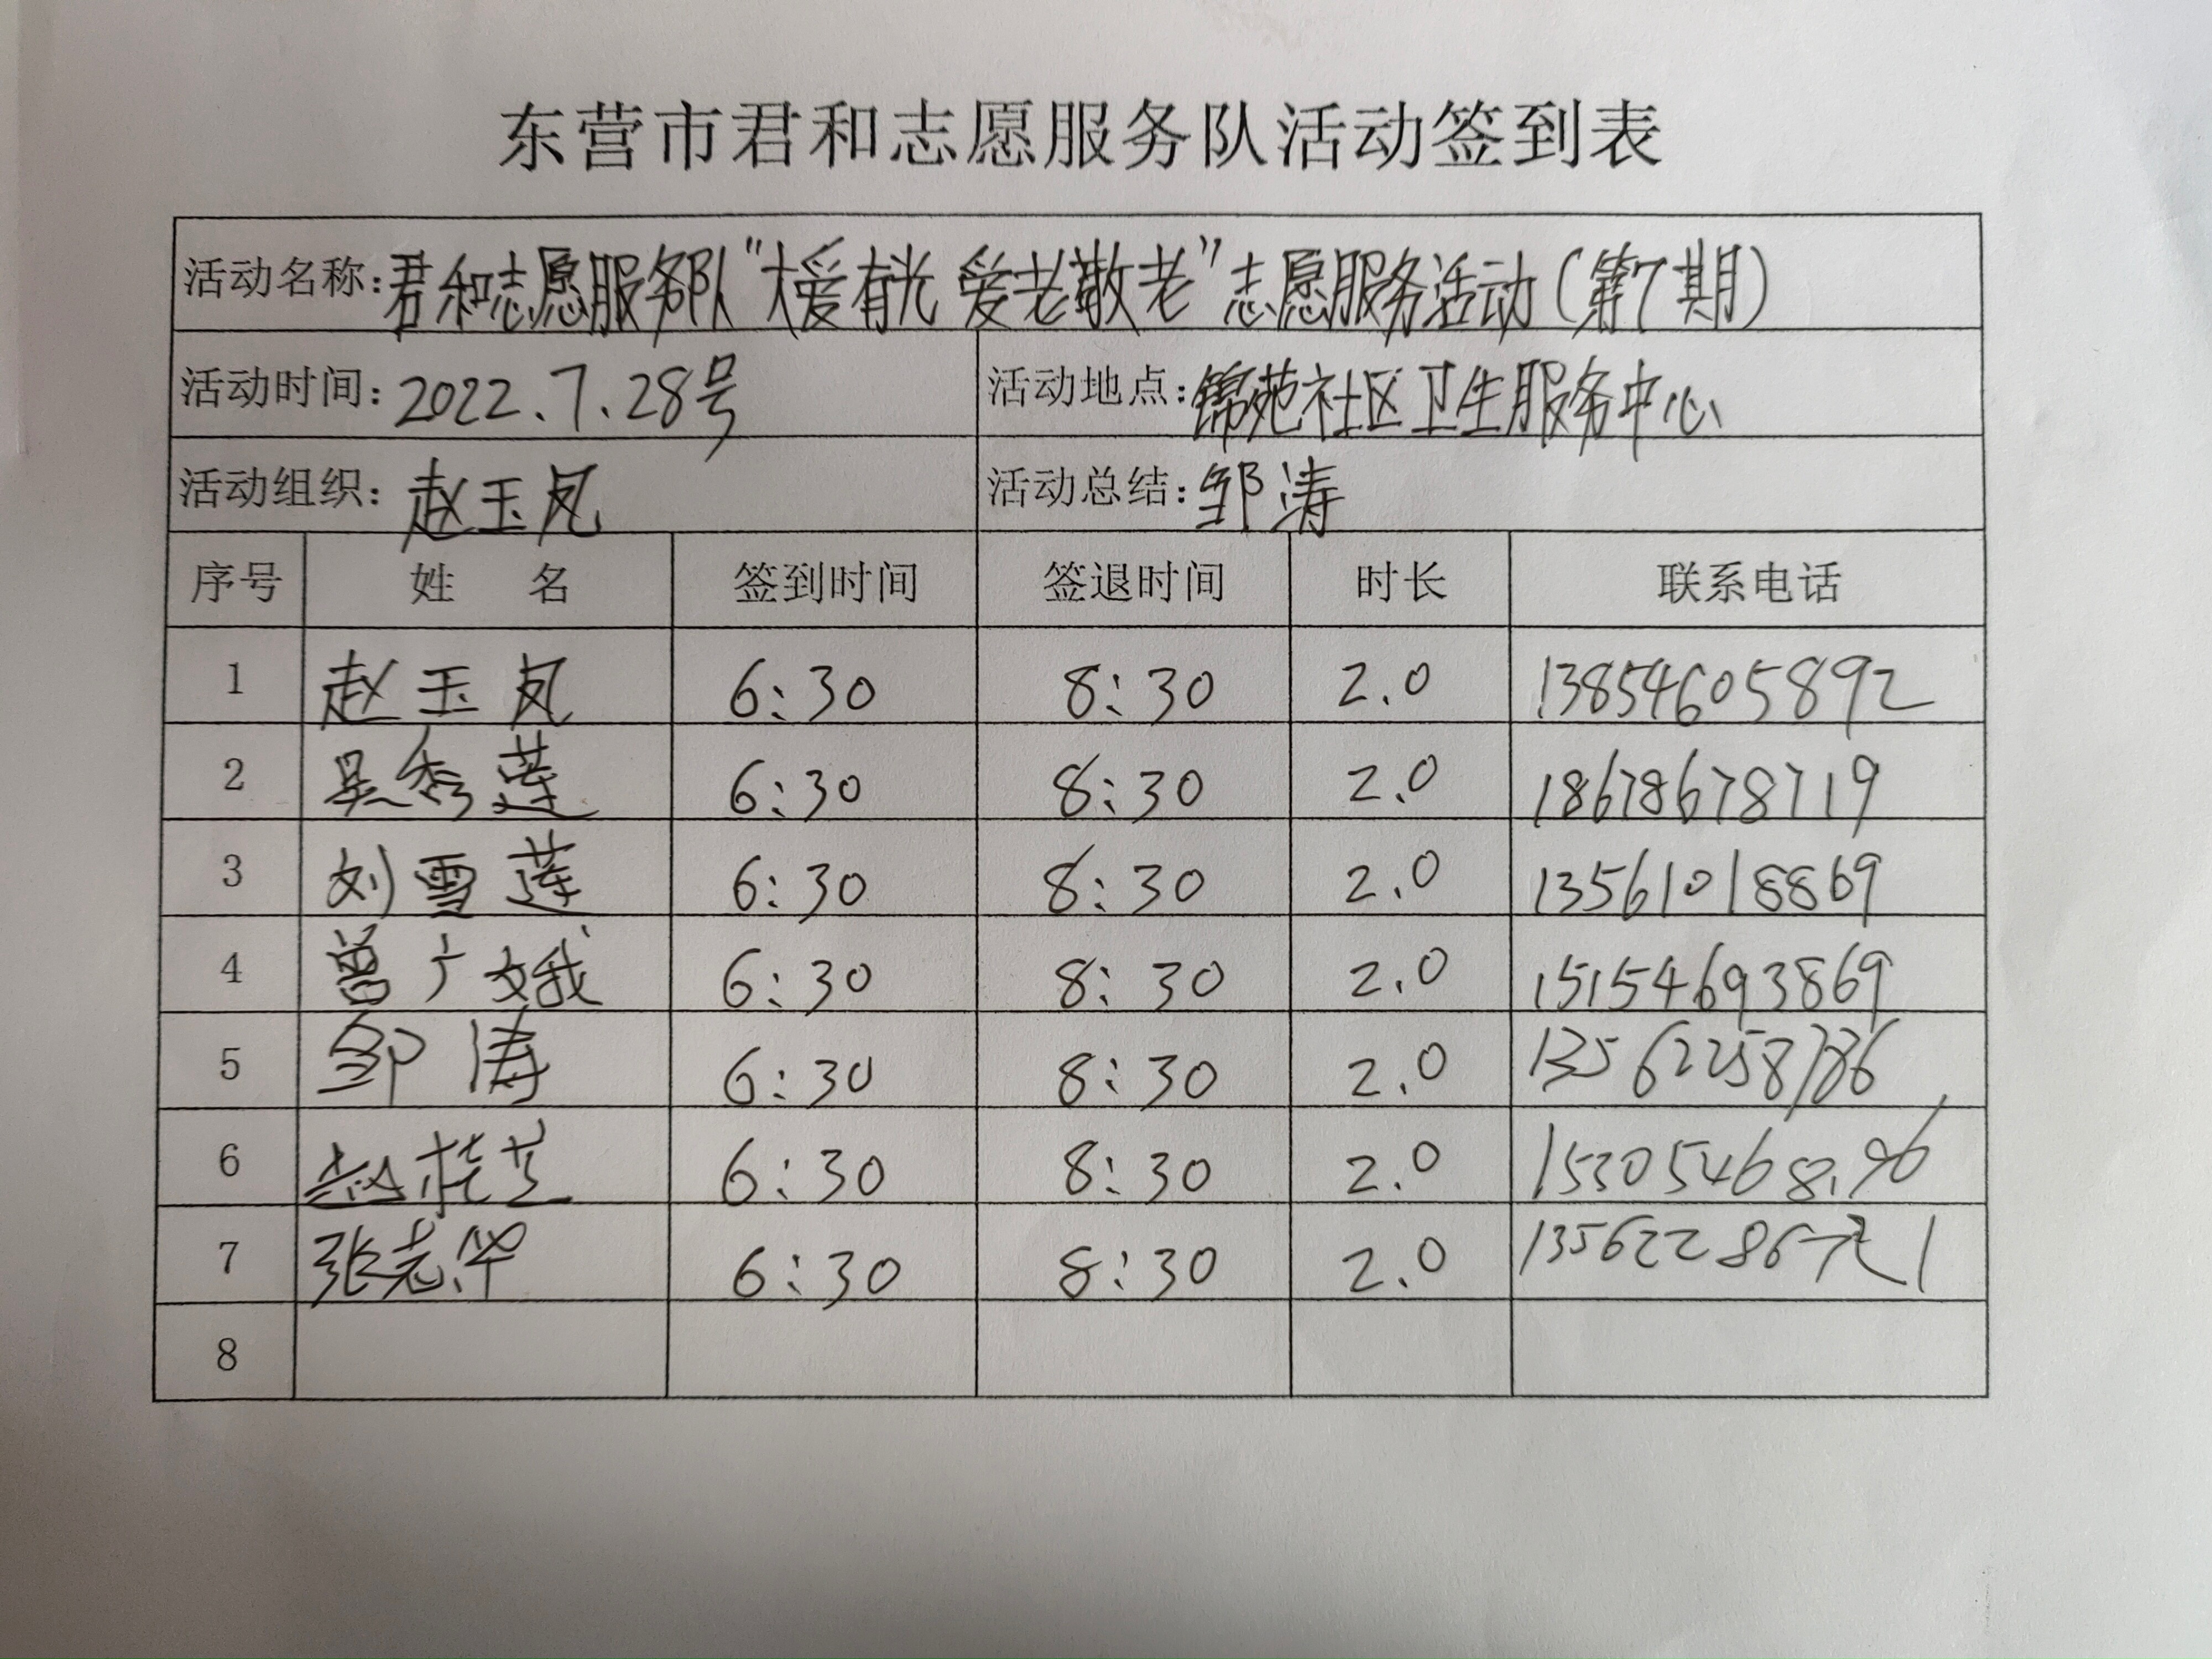 东营市君和志愿服务队活动签到表
活动名称:君和志愿服务队"大爱有光 爱老敬老"志愿服务活动(第7期)
活动时间:2022.7.28号 活动地点:锦苑社区卫生服务中心
活动组织:赵玉凤 活动总结:邹涛
序号 姓 名 签到时间 签退时间 时长 联系电话
1 赵玉凤 6:30 8:30 2.0 13854605892
2 吴秀莲 6:30 8:30 2.0 18678678719
3 刘雪莲 6:30 8:30 2.0 13561018869
4 曾广娥 6:30 8:30 2.0 15154693869
5 邹涛 6:30 8:30 2.0 13562258786
6 赵桂芝 6:30 8:30 2.0
7 张志华 6:30 8:30 2.0
8